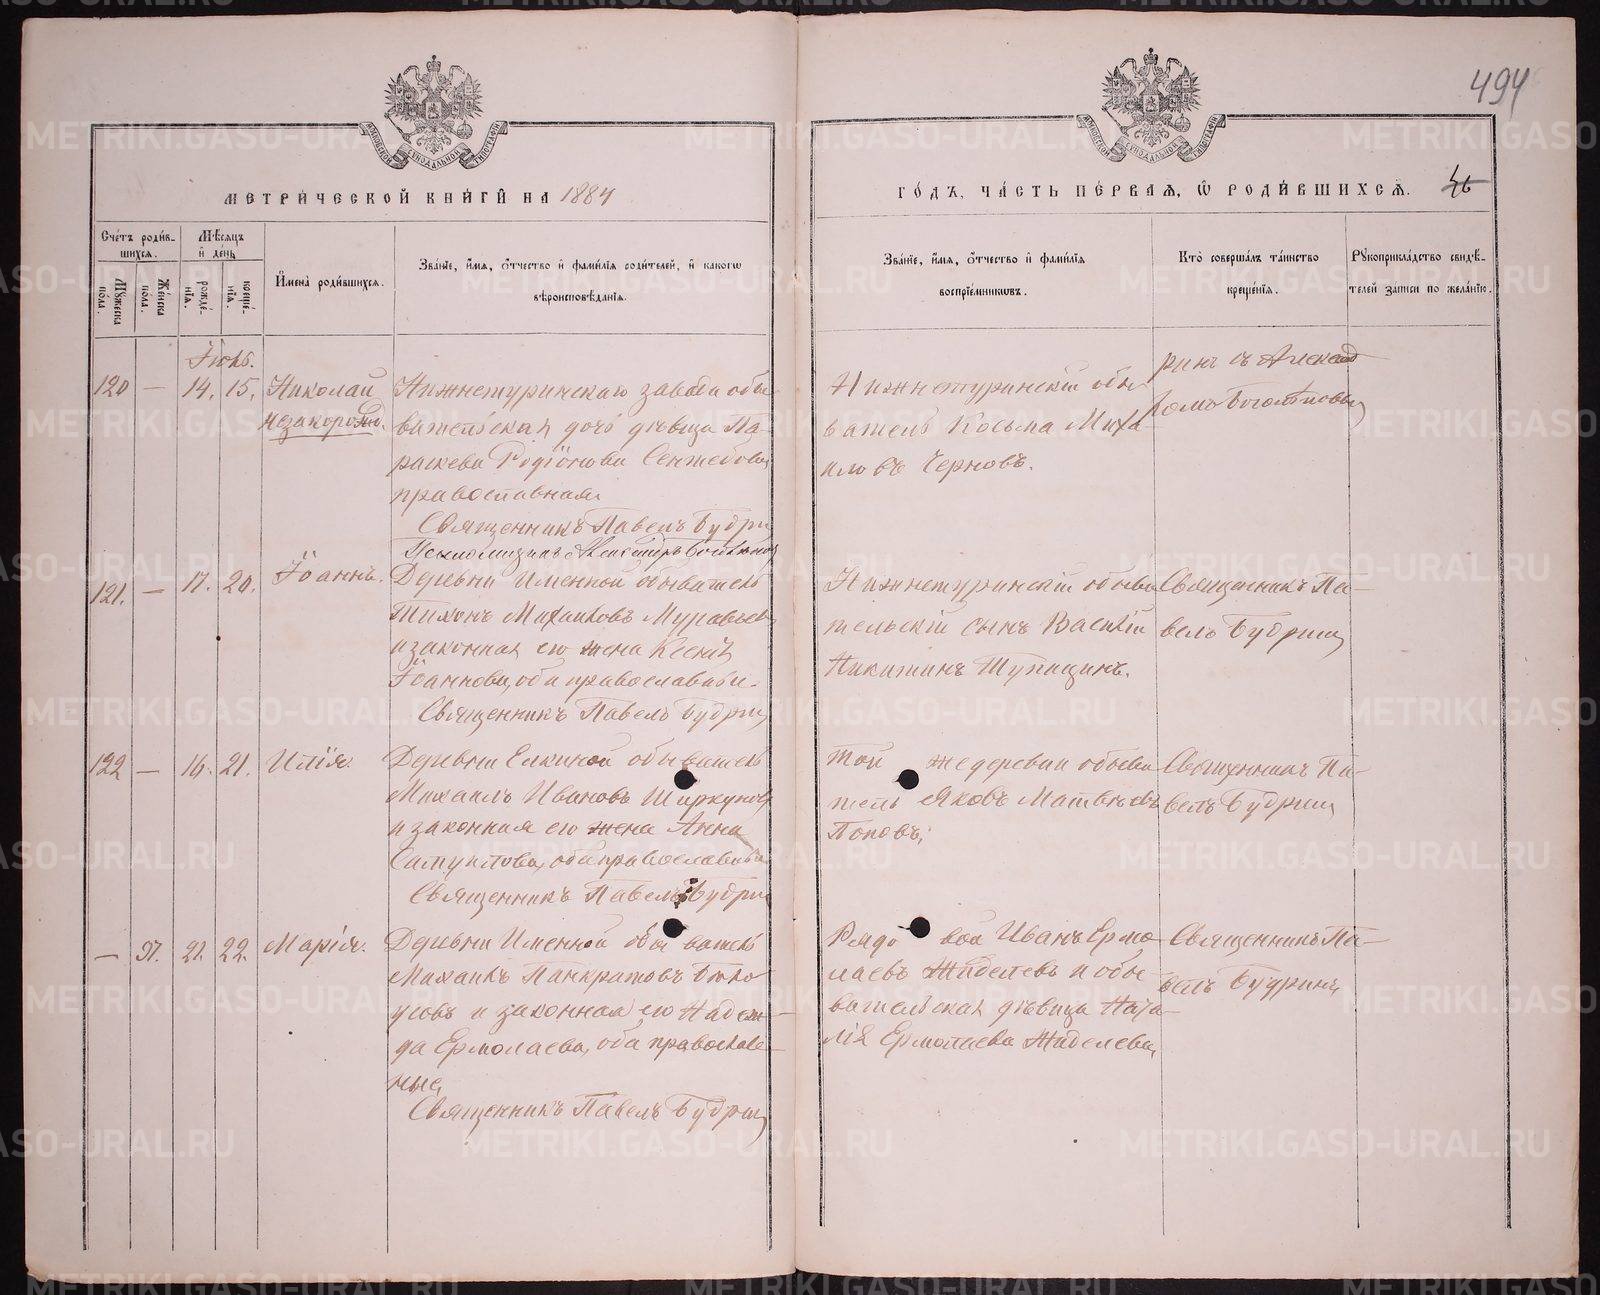 494
МЕТРИЧЕСКОЙ КНИГИ НА 1884
ГОДЪ, ЧАСТЬ ПЕРВАЯ, Ѡ РОДИВШИХСЯ.
46
Счетъ родив-
шихся.
Мѣсяцъ
и день
Мужеска
пола.
Женска
пола.
рожде-
нія.
креще-
нія.
Имена родившихся.
Званіе, имя, отчество и фамилія родителей, и какогѡ
вѣроисповѣданія.
Званіе, имя, отчество и фамилія
воспріемниковъ.
Кто совершалъ таинство
крещенія.
Рукоприкладство свидѣ-
телей записи по желанію.
Іюль.
120 — 14. 15. Николай
незаконорожд.
Нижнетуринскаго завода обы-
вательская дочь дѣвица Па-
раскева Родіонова
православная
Священникъ Павелъ Будри
Псаломщикъ Александръ
Нижнетуринскій обы-
ватель Косьма Миха-
иловъ Черновъ.
ринъ съ
121. — 17. 20. Іоаннъ.
Деревни Именной обыватель
Тихонъ Михаиловъ Муравьевъ
и законная его жена Ксенія
Іоаннова, оба православные.
Священникъ Павелъ Будринъ
Нижнетуринскій обыва-
тельскій сынъ Василій
Никитинъ Тупицинъ.
Священникъ Па-
велъ Будринъ
122 — 16. 21. Илія.
Деревни Елкиной обыватель
Михаилъ Ивановъ
и законная его жена Анна
Самуилова, оба православные
Священникъ Павелъ Будрин
Той же деревни обыва-
тель Яковъ Матвѣевъ
Поповъ.
Священникъ Па-
велъ Будринъ
— 97. 21. 22. Марія.
Деревни Именной обыватель
Михаилъ Панкратовъ Бѣло-
усовъ и законная его Надеж-
да Ермолаева, оба православ-
ные,
Священникъ Павелъ Будринъ
Рядовой Иванъ Ермо-
лаевъ Жиделевъ и обы-
вательская дѣвица Ната-
лія Ермолаева Жиделева,
Священникъ Па-
велъ Будринъ
METRIKI.GASO-URAL.RU